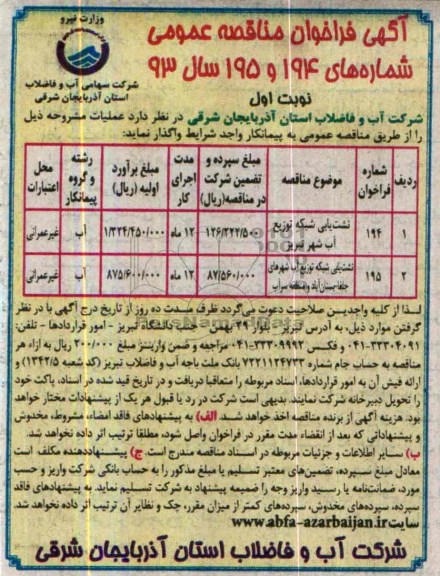 وزارت نیرو
شرکت سهامی آب و فاضلاب
استان آذربایجان شرقی
آگهی فراخوان مناقصه عمومی
شماره‌های ۱۹۴ و ۱۹۵ سال ۹۳
نوبت اول
شرکت آب و فاضلاب استان آذربایجان شرقی در نظر دارد عملیات مشروحه ذیل
را از طریق مناقصه عمومی به پیمانکار واجد شرایط واگذار نماید:
ردیف | شماره فراخوان | موضوع مناقصه | مبلغ سپرده و تضمین شرکت در مناقصه(ریال) | مدت اجرای کار | مبلغ برآورد اولیه (ریال) | رشته و گروه پیمانکار | محل اعتبارات
۱ | ۱۹۴ | نشت‌یابی شبکه توزیع آب شهر تبریز | ۱۲ ماه | آب | غیرعمرانی
۲ | ۱۹۵ | نشت‌یابی شبکه توزیع آب شهرهای جلفا-بستان‌آباد و منطقه سراب | ۸۷/۵۶۰/۰۰۰ | ۱۲ ماه | ۸۷۵/۶۰۰/۰۰۰ | آب | غیرعمرانی
لذا از کلیه واجدین صلاحیت دعوت می‌گردد ظرف مدت ده روز از تاریخ درج آگهی با در نظر
گرفتن موارد ذیل، به آدرس تبریز - بلوار ۲۹ بهمن - جنب باشگاه تبریز - امور قراردادها - تلفن:
۰۴۱-۳۳۳۰۴۰۹۱ و فکس ۳۳۳۰۹۹۹۲-۰۴۱ مراجعه و ضمن واریز مبلغ ۲۰۰/۰۰۰ ریال به ازاء هر
مناقصه به حساب جام شماره ۷۲۲۱۱۲۴۷۳۳ بانک ملت باجه آب و فاضلاب تبریز (کد شعبه ۱۳۴۲/۵) و
ارائه فیش آن به امور قراردادها، اسناد مربوطه را متعاقبا دریافت و در تاریخ قید شده در اسناد، پاکت خود
را تحویل دبیرخانه شرکت نمایند. بدیهی است شرکت در رد یا قبول هر یک از پیشنهادات مختار خواهد
بود. هزینه آگهی از برنده مناقصه اخذ خواهد شد. الف) به پیشنهادهای فاقد امضاء، مشروط، مخدوش
و پیشنهاداتی که بعد از انقضاء مدت مقرر در فراخوان واصل شود، مطلقا ترتیب اثر داده نخواهد شد.
ب) سایر اطلاعات و جزئیات مربوطه در اسناد مناقصه مندرج است. ج) پیشنهاددهنده مکلف است
معادل مبلغ سپرده، تضمین‌های معتبر تسلیم یا مبلغ مذکور را به حساب بانکی شرکت واریز و حسب
مورد، ضمانت‌نامه یا رسید واریز وجه را ضمیمه پیشنهاد به شرکت تسلیم نماید. به پیشنهادهای فاقد
سپرده، سپرده‌های مخدوش، سپرده‌های کمتر از میزان مقرر، چک و نظایر آن ترتیب اثر داده نخواهد شد.
سایت www.abfa-azarbaijan.ir
شرکت آب و فاضلاب استان آذربایجان شرقی